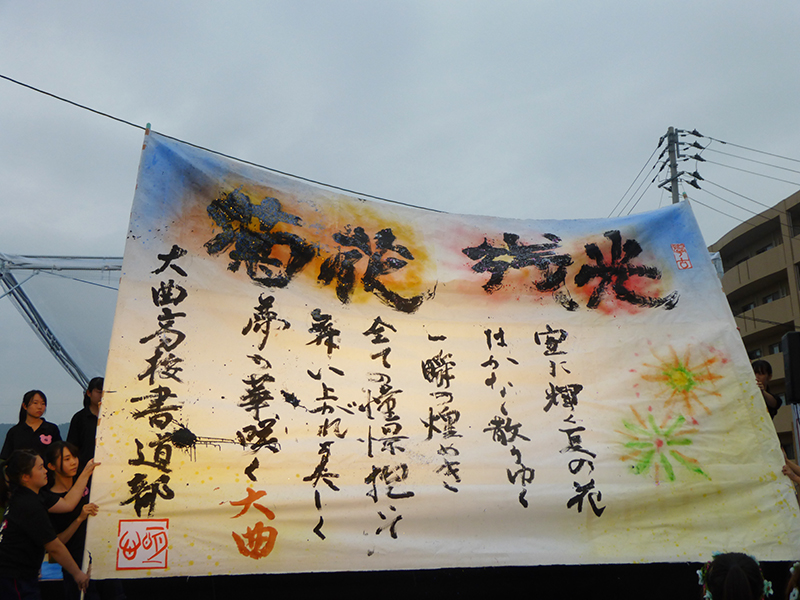 菊花
光
空に輝く夏の花
はかなく散りゆく
一瞬の煌めき
全ての憧憬抱いて
舞い上がれ美しく
夢の華咲く大曲
大曲高校書道部